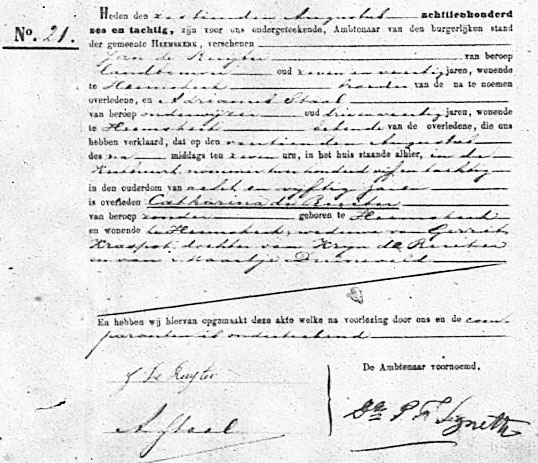 Heden den zestienden Augustus achttienhonderd
No. 21. zes en tachtig, zijn voor ons ondergeteekende, Ambtenaar van den burgerlijken stand
der gemeente HEEMSKERK, verschenen
Jan de Ruyter van beroep
landbouwer oud zeven en veertig jaren, wonende
te Heemskerk broeder van de na te noemen
overledene, en Adrianus Staal
van beroep onderwijzer oud jaren, wonende
te Heemskerk bekende van de overledene, die ons
hebben verklaard, dat op den Augustus
des na middags ten zeven ure, in het huis staande alhier, in de
nummer twee honderd vijf en tachtig
in den ouderdom van acht en vijftig jaren
is overleden Catharina de Ruijter
van beroep zonder geboren te Heemskerk
en wonende te Heemskerk, weduwe van Gerrit
dochter van Krijn de Ruijter
en van Maartje Duineveld
En hebben wij hiervan opgemaakt deze akte welke na voorlezing door ons en de com-
paranten is onderteekend
De Ambtenaar voornoemd,
J de Ruyter
A Staal